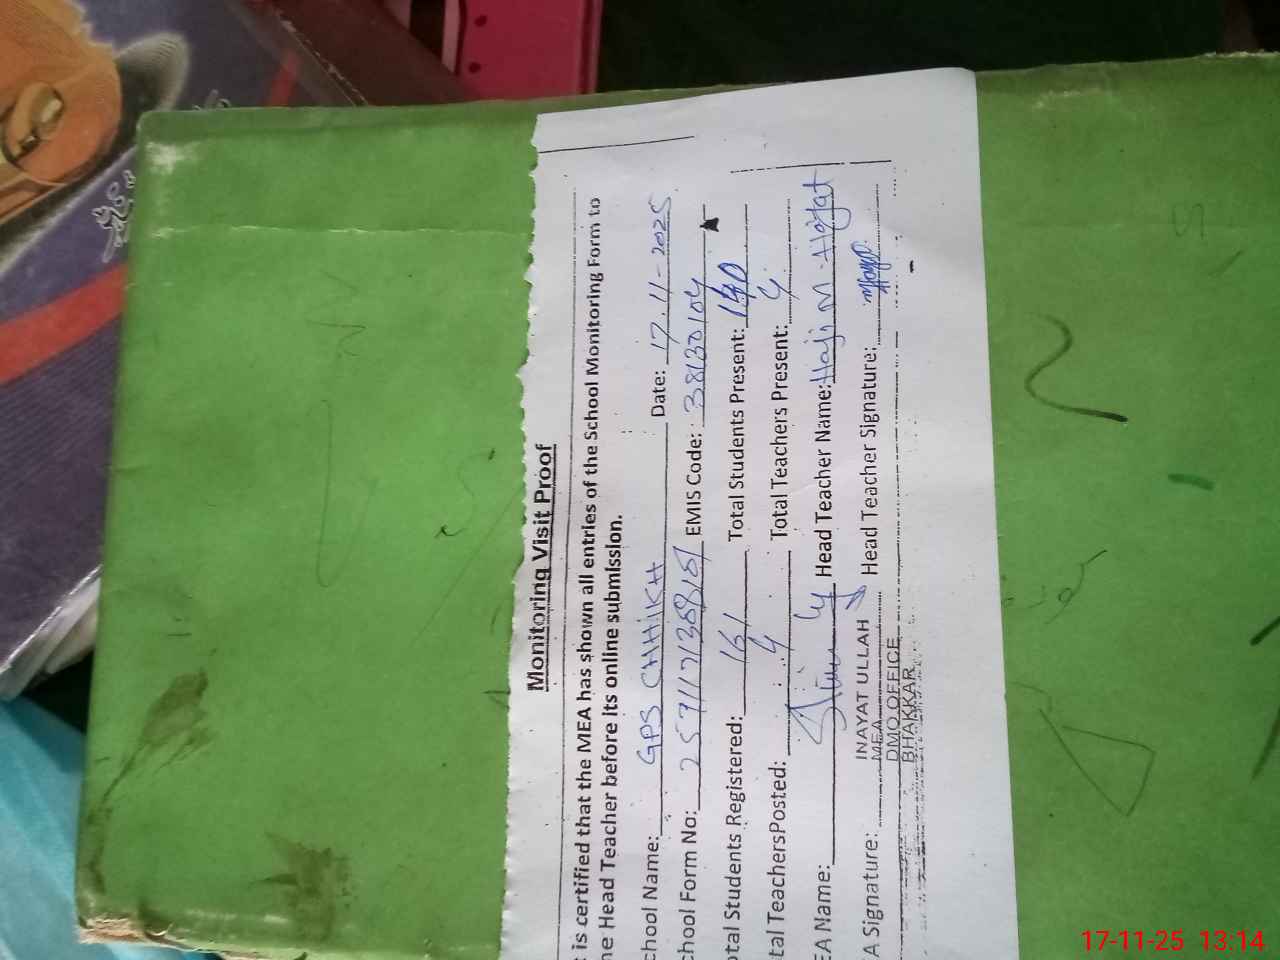 Monitoring Visit Proof
is certified that the MEA has shown all entries of the School Monitoring Form to
he Head Teacher before its online submission.
chool Name: GPS CHHIKH Date: 17.11-2025
chool Form No: EMIS Code: 38130104
otal Students Registered: 161 Total Students Present:
tal TeachersPosted: 4 Total Teachers Present: 4
EA Name: Head Teacher Name: Hajji M. Hayat
EA Signature: Head Teacher Signature:
INAYAT ULLAH
MEA
DMO OFFICE
BHAKKAR
17-11-25 13:14